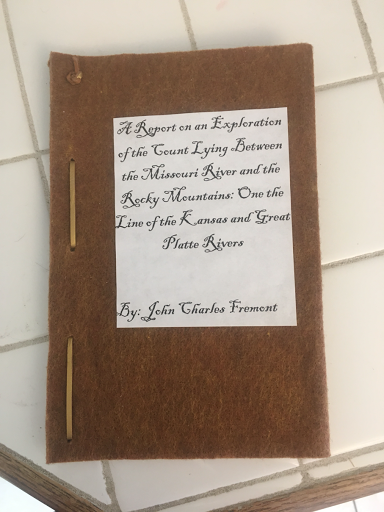 A Report on an Exploration
of the Count Lying Between
the Missouri River and the
Rocky Mountains: One the
Line of the Kansas and Great
Platte Rivers
By: John Charles Fremont